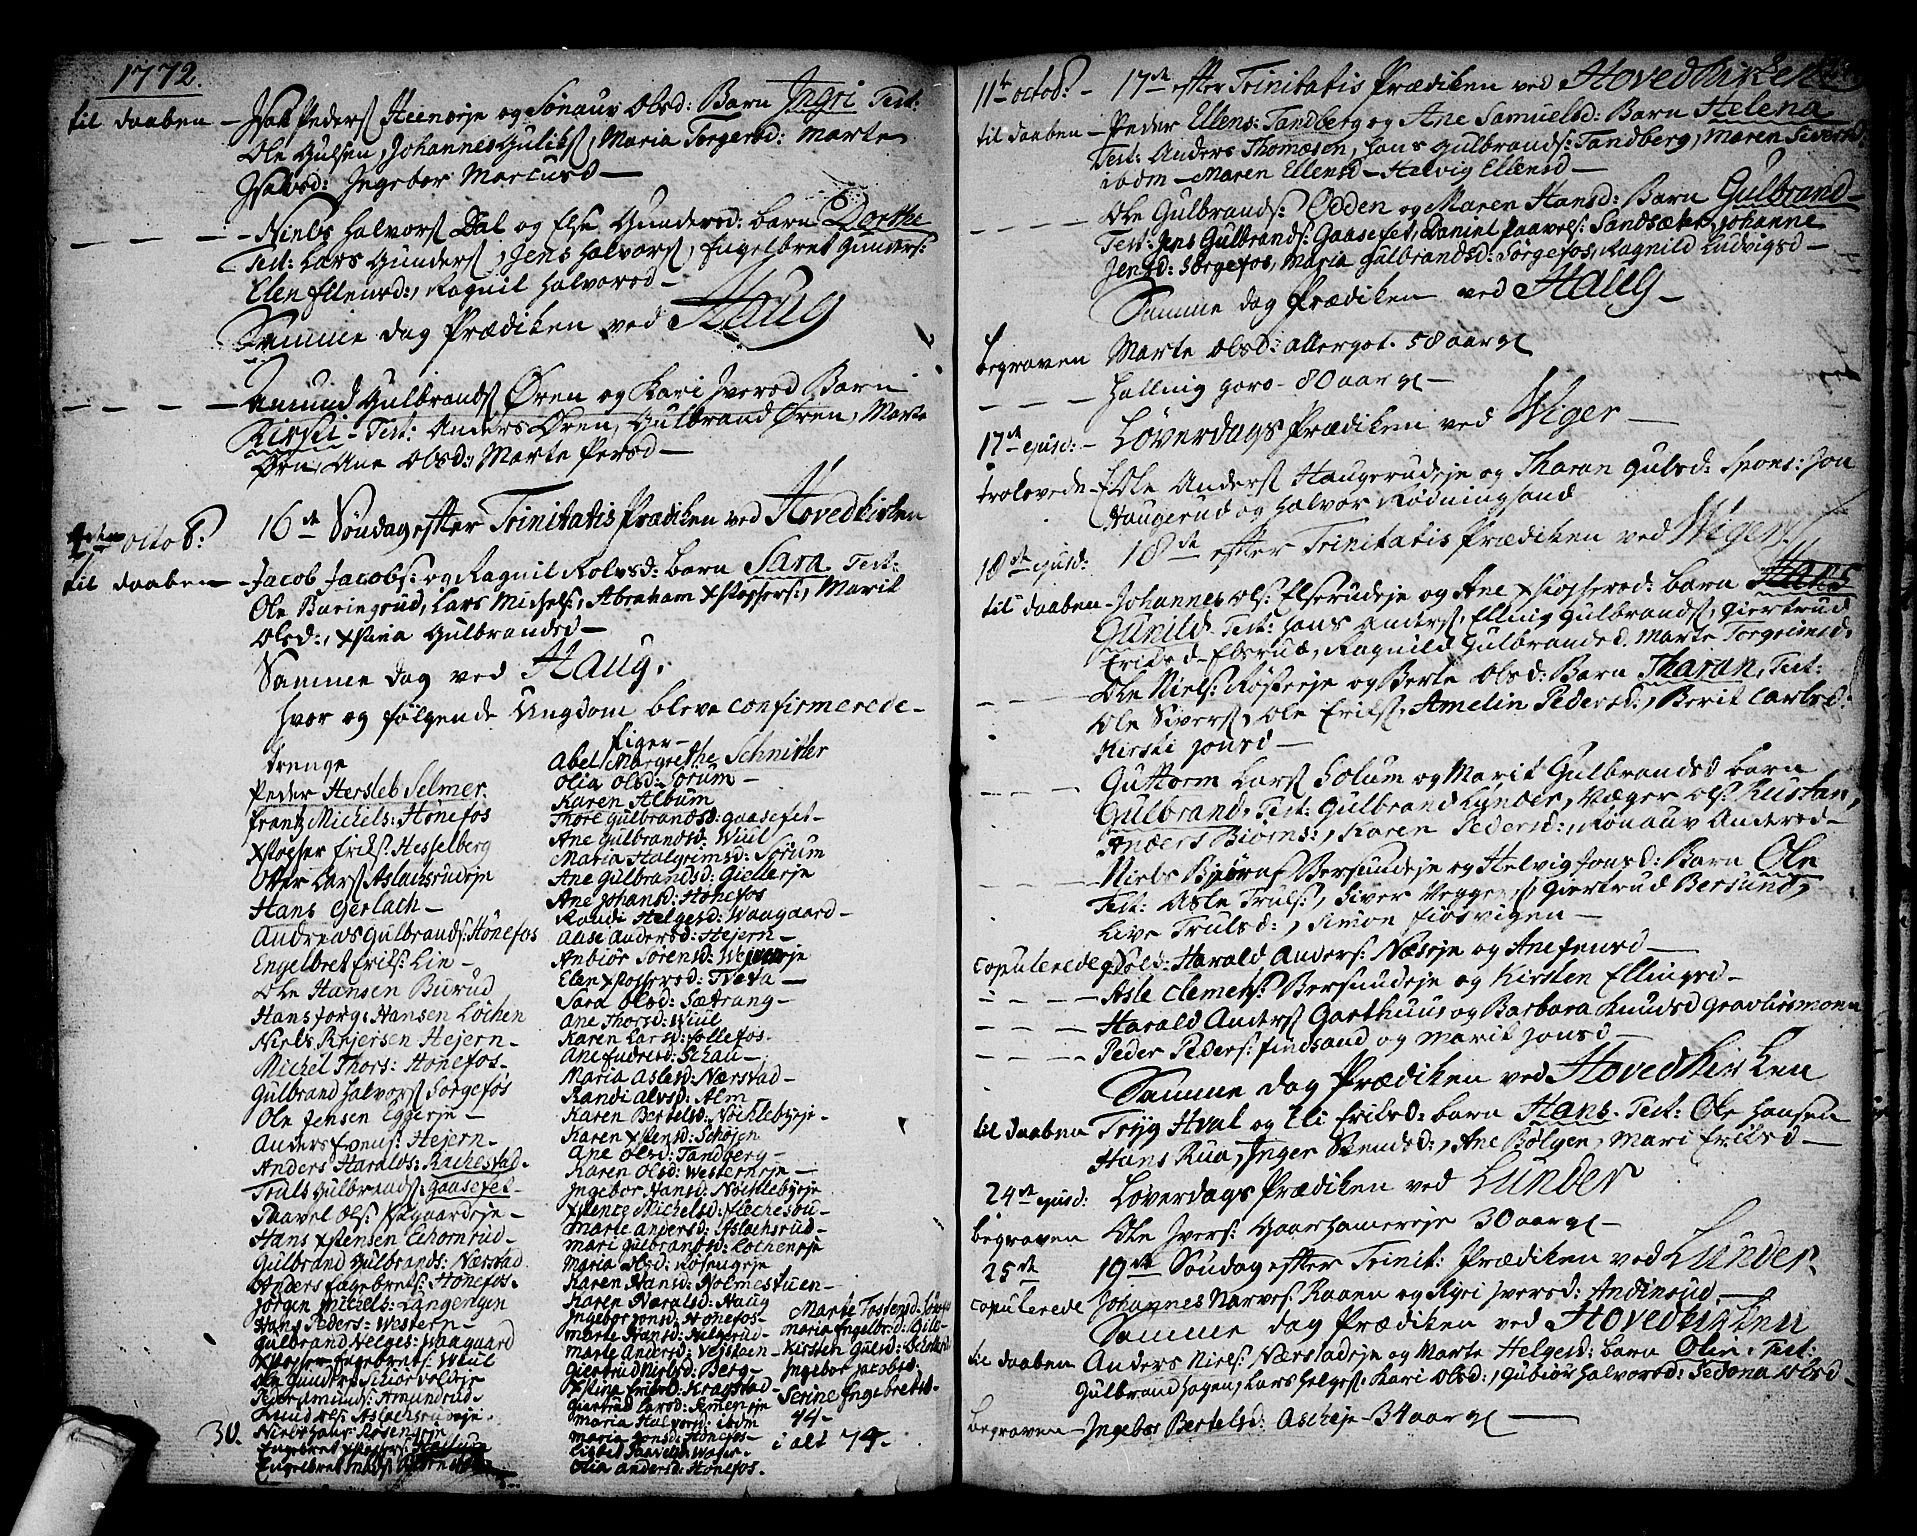 1772.
til daaben – Isak Peders Heenseje og Sønauv Olsd: Barn Ingri Test:
Ole Gulsen, Johannes Guliks, Maria Torgersd: Marte
Isaksd: Ingebor Marcusd –
– Niels Halvors Dal og Else Gundersd: barn Dorthe
Test: Lars Gunders, Jens Halvors, Engelbret Gunders:
Elen Ellensd:, Ragnil Halvorsd –
Samme dag Prædiken ved Haug
– Amund Gulbrands Øren og Kari Iversd Barn
Kirsti – Test: Anders Øren, Gulbrand Øren, Marte
Ørn, Ane Olsd:, Marte Persd –
octob: 16de Søndag efter Trinitatis Prædiken ved Hovedkirken
til daaben – Jacob Jacobs: og Ragnil Rolvsd: barn Sara. Test:
Ole Baringrud, Lars Michels:, Abraham Xstophers:, Marit
Olsd:, Xstina Gulbrandsd –
Samme dag ved Haug.
hvor og følgende Ungdom bleve confirmerede –
drenge
Peder Hersleb Selmer.
Frantz Michels: Hønefos
Xstopher Eriks: Hesselberg
Otter Lars Aslachsrudeje
Hans Gerlach –
Andreas Gulbrands: Hønefos
Engelbret Eriks: Lin –
Ole Hansen Burud
Hans Jørg: Hansen Lochen
Niels Rejersen Hejern –
Michel Thors: Hønefos.
Gulbrand Halvors Sørgefos
Ole Jensen Eggerje –
Anders Jonus: Hejern –
Anders Haralds: Rachestad.
Truls Gulbrands: Gaasefet –
Paavel Ols:
Hans Xstensen Echornrud –
Gulbrand Gulbrands: Nærstad
Anders Engebrets: Hønefos.
Jørgen Michels: Langengen
Hans Peders: Western –
Gulbrand Helges: Waagaard
Xstopher Ingebrets: Wiul
Ole Gunders:
Peder Amunds: Amundrud.
Knud Ols: Aslachsrudeje.
Niels Hans: Rosengeje
30.
figer –
Abel Margrethe Schnitler
Olia Olsd: Sørum –
Karen Album
Thore Gulbrandsd: Gaasefet –
Ane Gulbrandsd: Wiul –
Maria Halgrimsd: Sørum
Ane Gulbrandsd: Gielleseje
Ane Johansd: Hønefos
Randi Helgesd: Waagaard –
Aase Andersd: Hejern –
Anbiør Sørensd:
Elen Xstophersd: Tveta –
Sara Olsd: Sætrang –
Ane Thorsd: Wiul
Karen Larsd: Follefos.
Ane Endresd: Schau –
Maria Aslesd: Nærstad –
Randi Alvsd: Alm
Karen Bertelsd: Nøchlebyeje –
Karen Xstensd: Schøjen
Ane Olsd: Tandberg –
Karen Olsd: Westerneje –
Ingebor Hansd: Nøchlebyeje
Xstence Michelsd:
Marte Andersd: Aslachsrud –
Mari Gulbrandsd: Locheneje
Maria Olsd: Rosengeje
Karen Hansd: Holmestuen –
Karen Haralsd: Haug
Ingebor Jonsd: Hønefos –
Marte Hansd: Helgerud –
Marte Andersd: Vejstaen –
Giertrud Nielsd: Berg –
Xstine Eriksd: Kragstad –
Giertrud Larsd:
Maria Halvorsd: ibdm
Maria Jonsd: Hønefos –
Lisbet Paavelsd: Wager.
Olia Andersd: Hønefos.
Marte Tostensd:
Maria Engelbrsd:
Kirsten Gulsd:
Ingebor Jacobsd:
Serine Ingebretsd.
44 –
i alt 74.
11te octob: – 17de efter Trinitatis Prædiken ved Hovedkirken
til daaben – Peder Ellens: Tandberg og Ane Samuelsd: Barn Helena
Test: Anders Thomæsen, Hans Gulbrands: Tandberg, Maren Siversd:
ibdm – Maren Ellensd – Helvig Ellensd –
– Ole Gulbrands: Odden og Maren Hansd: Barn Gulbrand –
Test: Jens Gulbrands: Gaasefet, Daniel Paavels: Sandsæter, Johanne
Jensd: Sørgefos, Maria Gulbrandsd: Sørgefos, Ragnild Ludvigsd –
Samme dag Prædiken ved Haug –
begraven Marte Olsd: Allergot. 58 aar gl
– Halling Goro – 80 aar gl –
17de ejusd: – Løverdags Prædiken ved Wiger –
trolovede – Ole Anders Haugerudeje og Tharan Gulsd: Spons: Jon
Haugerud og Halvor Rødningsand
18de ejusd: 18de efter Trinitatis Prædiken ved Wiger
til daaben – Johannes Ols: Elserudeje og Ane Xstophersd: barn Hans
Gunild – Test: Hans Anders, Elling Gulbrands, Giertrud
Eriksd – Elsrud, Ragnild Gulbrandsd. Marte Torgrimsd.
– Ole Niels: Røsteeje og Berte Olsd: Barn Tharan, Test:
Ole Sivers, Ole Eriks, Amelin Pedersd:, Berit Carlsd:
Kirsti Jonsd –
– Guttorm Lars Solum og Marit Gulbrandsd barn
Gulbrand, Test: Gulbrand Lunder, Væger Ols: Kustan,
Anders Biørns:, Karen Pedersd:, Rønauv Andersd –
– Niels Bjørns Bersundeje og Helvig Jonsd: Barn Ole
Test: Asle Truls:, Siver Veggers, Giertrud Bersund,
Live Trulsd:, Simon Fiøsvigen –
copulerede Sold: Harald Anders: Næseje og Ane Jensd –
– Asle Clemets: Bersundeje og Kirsten Ellingsd –
– Harald Anders Garthuus og Barbara Knudsd Gravlismoen
– Peder Peders: Findsand og Marit Jonsd –
Samme dag Prædiken ved Hovedkirken
til daaben Tryg Hval og Eli Eriksd: barn Hans. Test: Ole Hansen
Hans Rua, Inger Svendsd:, Ane Bølgen, Mari Eriksd –
24de ejusd: Løverdags Prædiken ved Lunder
begraven Ole Ivers: Gaarhamereje 30 aar gl –
25de 19de Søndag efter Trinit: Prædiken ved Lunder.
copulerede Johannes Narves: Raaen og Kyri Iversd: Andinsud –
Samme dag Prædiken ved Hovedkirken
til daaben Anders Niels: Nærstadeje og Marte Helgesd: barn Olia. Test:
Gulbrand Hagen, Lars Helges: Kari Olsd:, Gubiør Halvorsd: Sedona Olsd –
begraven – Ingebor Bertelsd: Ascheje – 34 aar gl –